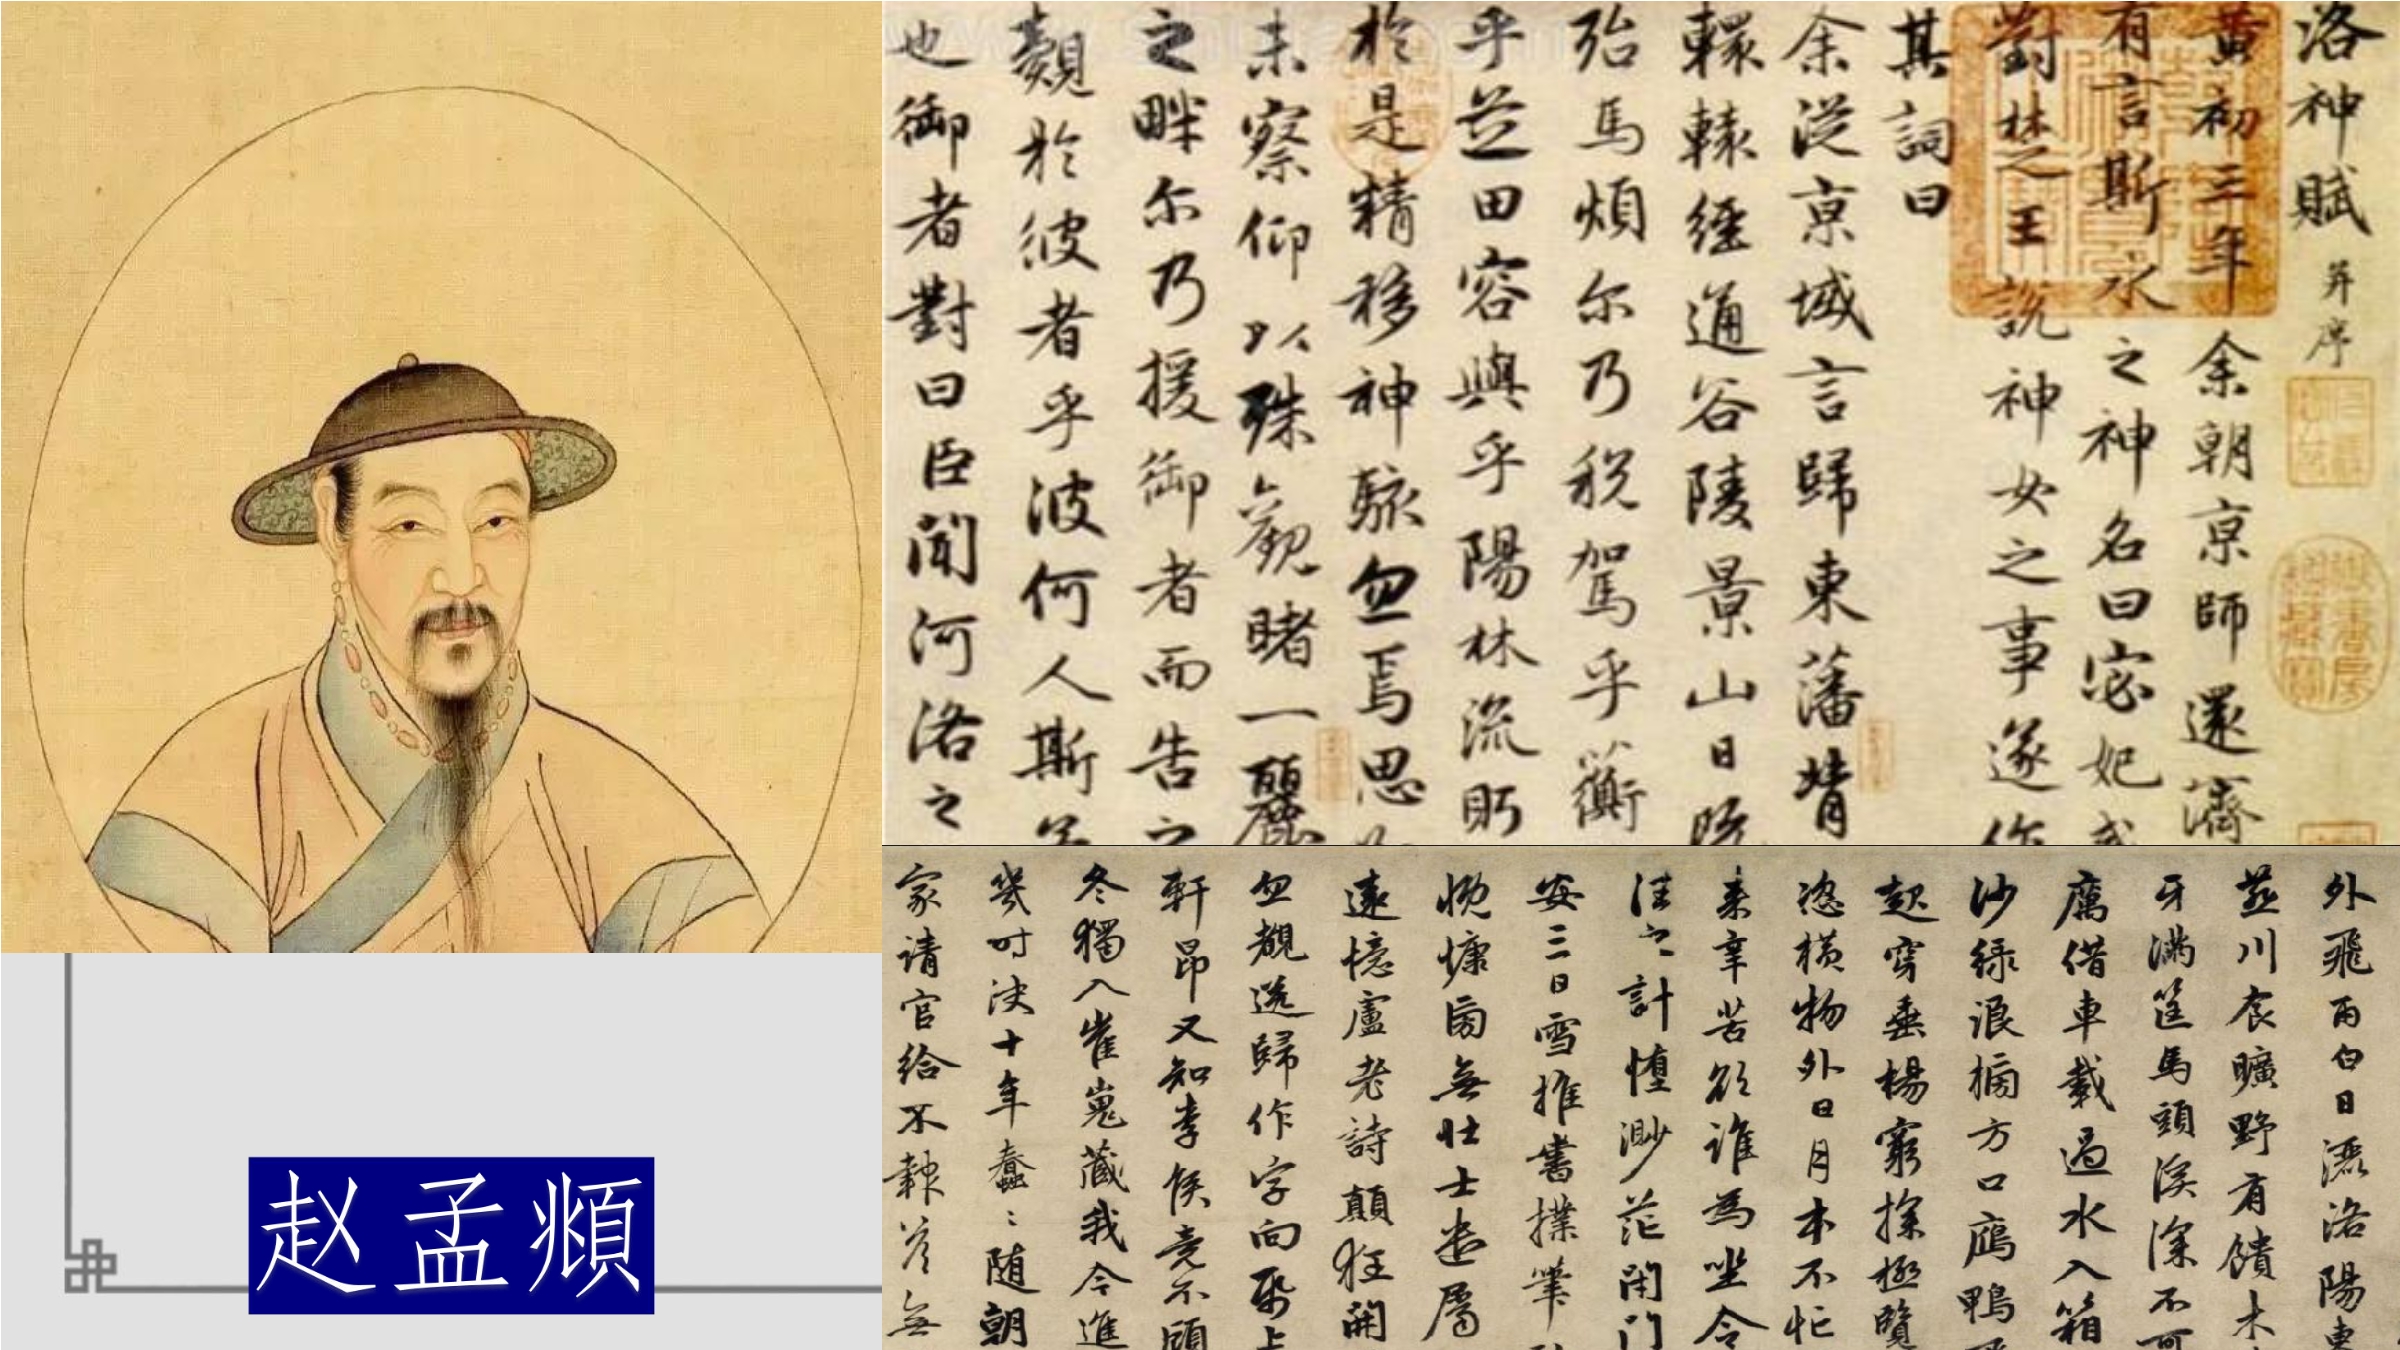 洛神賦 并序
黄初三年余朝京師還濟
有言斯水之神名曰宓妃
對楚王說神女之事遂作
其詞曰
余從京域言歸東藩背
轘轅經通谷陵景山日既
殆馬煩尓乃稅駕乎蘅
乎芝田容與乎陽林流眄
於是精移神駭忽焉思
未察仰以殊觀睹一麗
之畔尓乃援御者而告之
覿於彼者乎彼何人斯若
也御者對曰臣聞河洛之
外飛雨白日灑洛陽東
燕川食曠野有饋木
牙滿筐馬頭溪深不可
厲借車載過水入箱
沙緑浪榜方口鴈鴨
起穿垂楊窮探極覽
恣横物外日月本不忙
来辛苦欲誰為坐令
往之計墮渺茫閉門
安三日雪推書撲筆
慨慷旁無壯士遣屬
遠憶盧老詩顛狂開
忽覩送歸作字向帋上
軒昂又知李侯竟不顧
冬獨入崔嵬藏我今進
幾时決十年蠢〻随朝
家請官給不報答無
赵孟頫